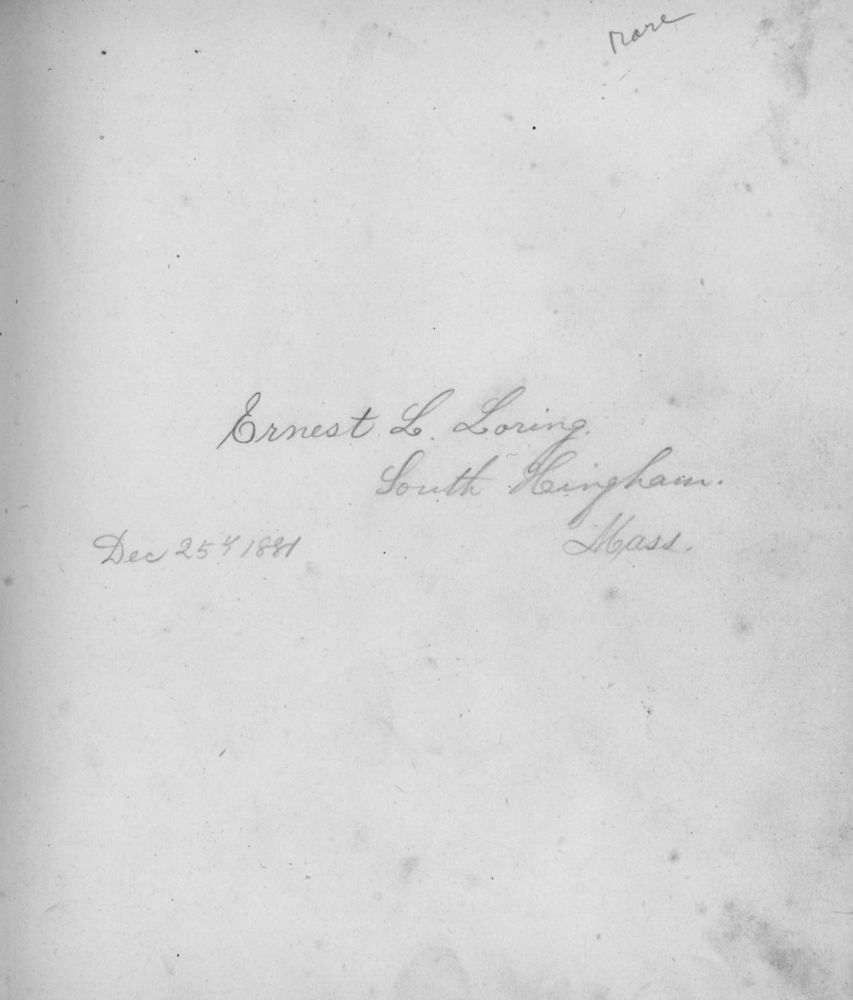 rare
Ernest L. Loring.
South Hingham.
Mass.
Dec 25th 1881